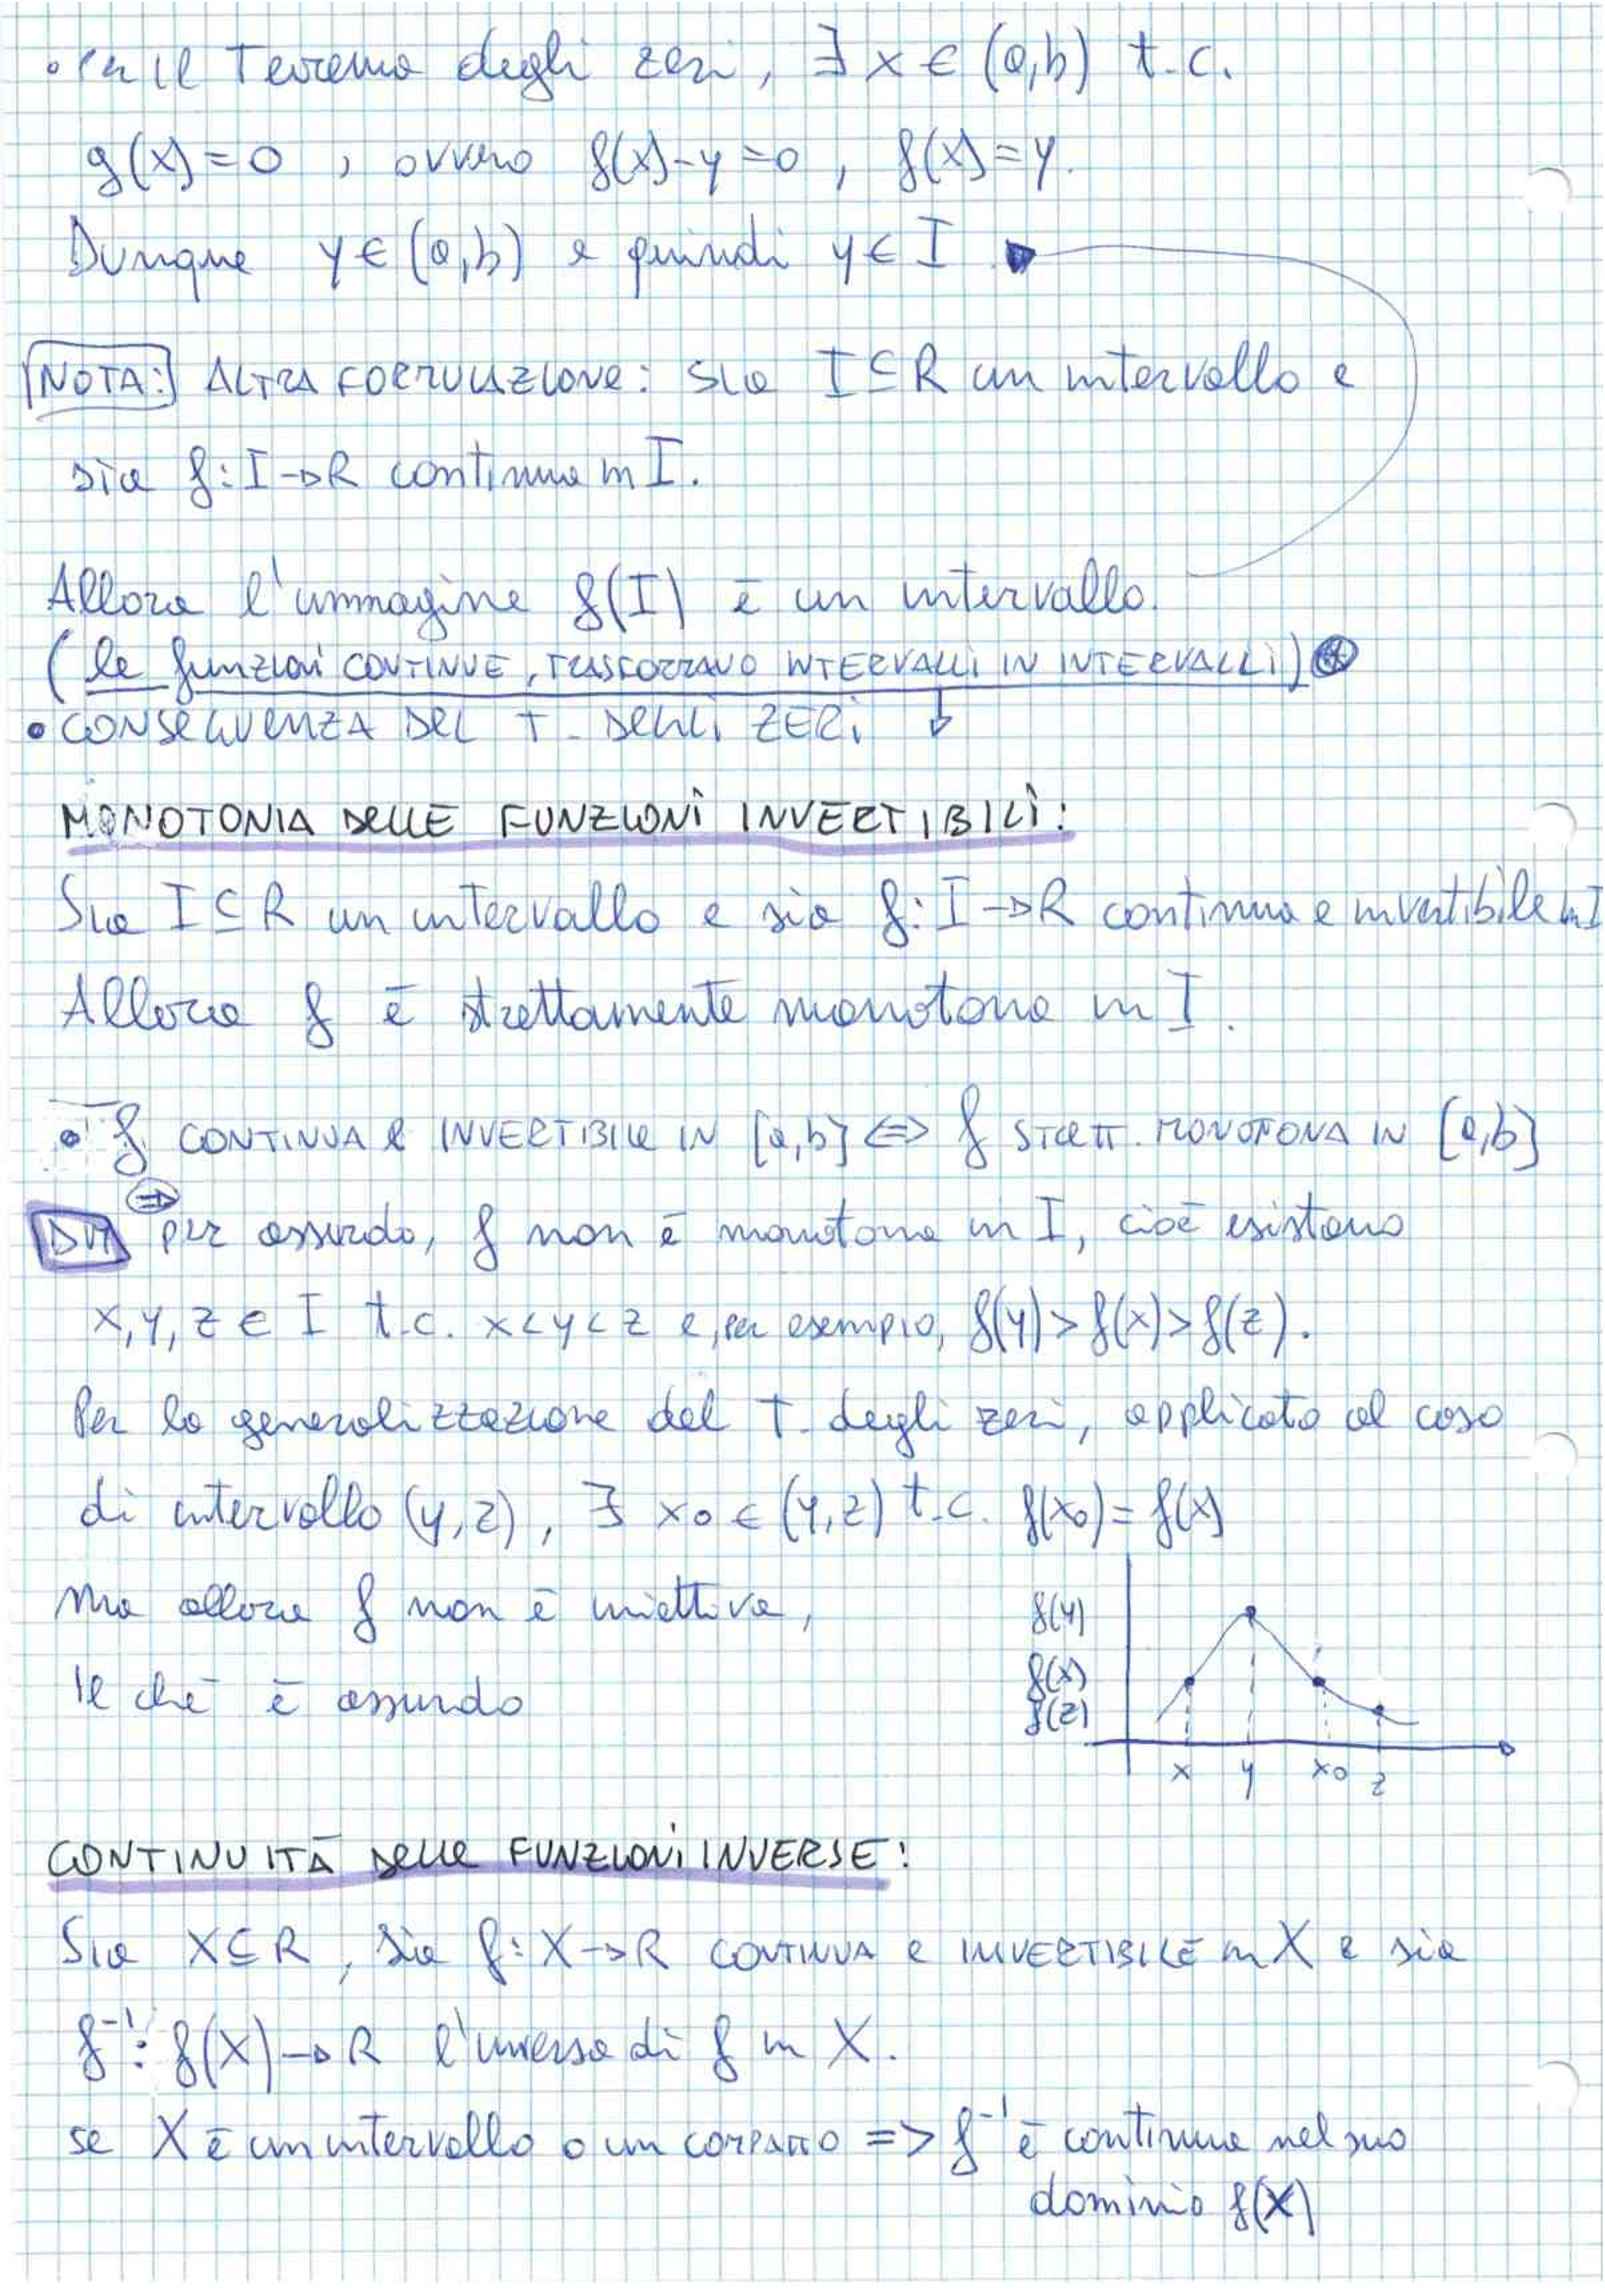 • Per il Teorema degli zeri, ∃ x ∈ (a,b) t.c.
g(x)=0 , ovvero f(x)-y=0 , f(x)=y.
Dunque y ∈ (a,b) e quindi y ∈ I
NOTA: ALTRA FORMULAZIONE: sia I ⊆ R un intervallo e
sia f: I → R continua in I.
Allora l'immagine f(I) è un intervallo.
(le funzioni CONTINUE, TRASFORMANO INTERVALLI IN INTERVALLI) *
• CONSEGUENZA DEL T. DEGLI ZERI ↓
MONOTONIA DELLE FUNZIONI INVERTIBILI:
Sia I ⊆ R un intervallo e sia f: I → R continua e invertibile in I
Allora f è strettamente monotona in I.
• f CONTINUA e INVERTIBILE IN [a,b] <=> f STRETT. MONOTONA IN [a,b]
=>
DIM per assurdo, f non è monotona in I, cioè esistono
x,y,z ∈ I t.c. x<y<z e, per esempio, f(y)>f(x)>f(z).
Per la generalizzazione del T. degli zeri, applicato al caso
di intervallo (y,z), ∃ x0 ∈ (y,z) t.c. f(x0) = f(x)
ma allora f non è iniettiva,
il chè è assurdo
f(y)
f(x)
f(z)
x y x0 z
CONTINUITÀ DELLE FUNZIONI INVERSE:
Sia X ⊆ R, sia f: X → R CONTINUA e INVERTIBILE in X e sia
f⁻¹: f(X) → R l'inversa di f in X.
se X è un intervallo o un COMPATTO => f⁻¹ è continua nel suo
dominio f(X)